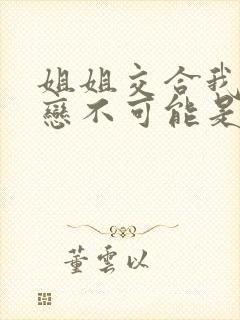 姐姐交合我
戀不可能是
董雲以